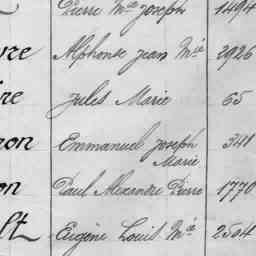 Pierre Mie Joseph 1494
vre Alphonse Jean Mie 2926
re Jules Marie 65
ron Emmanuel Joseph 341
Marie
on Paul Alexandre Pierre 1770
lt Eugène Louis Mie 2504